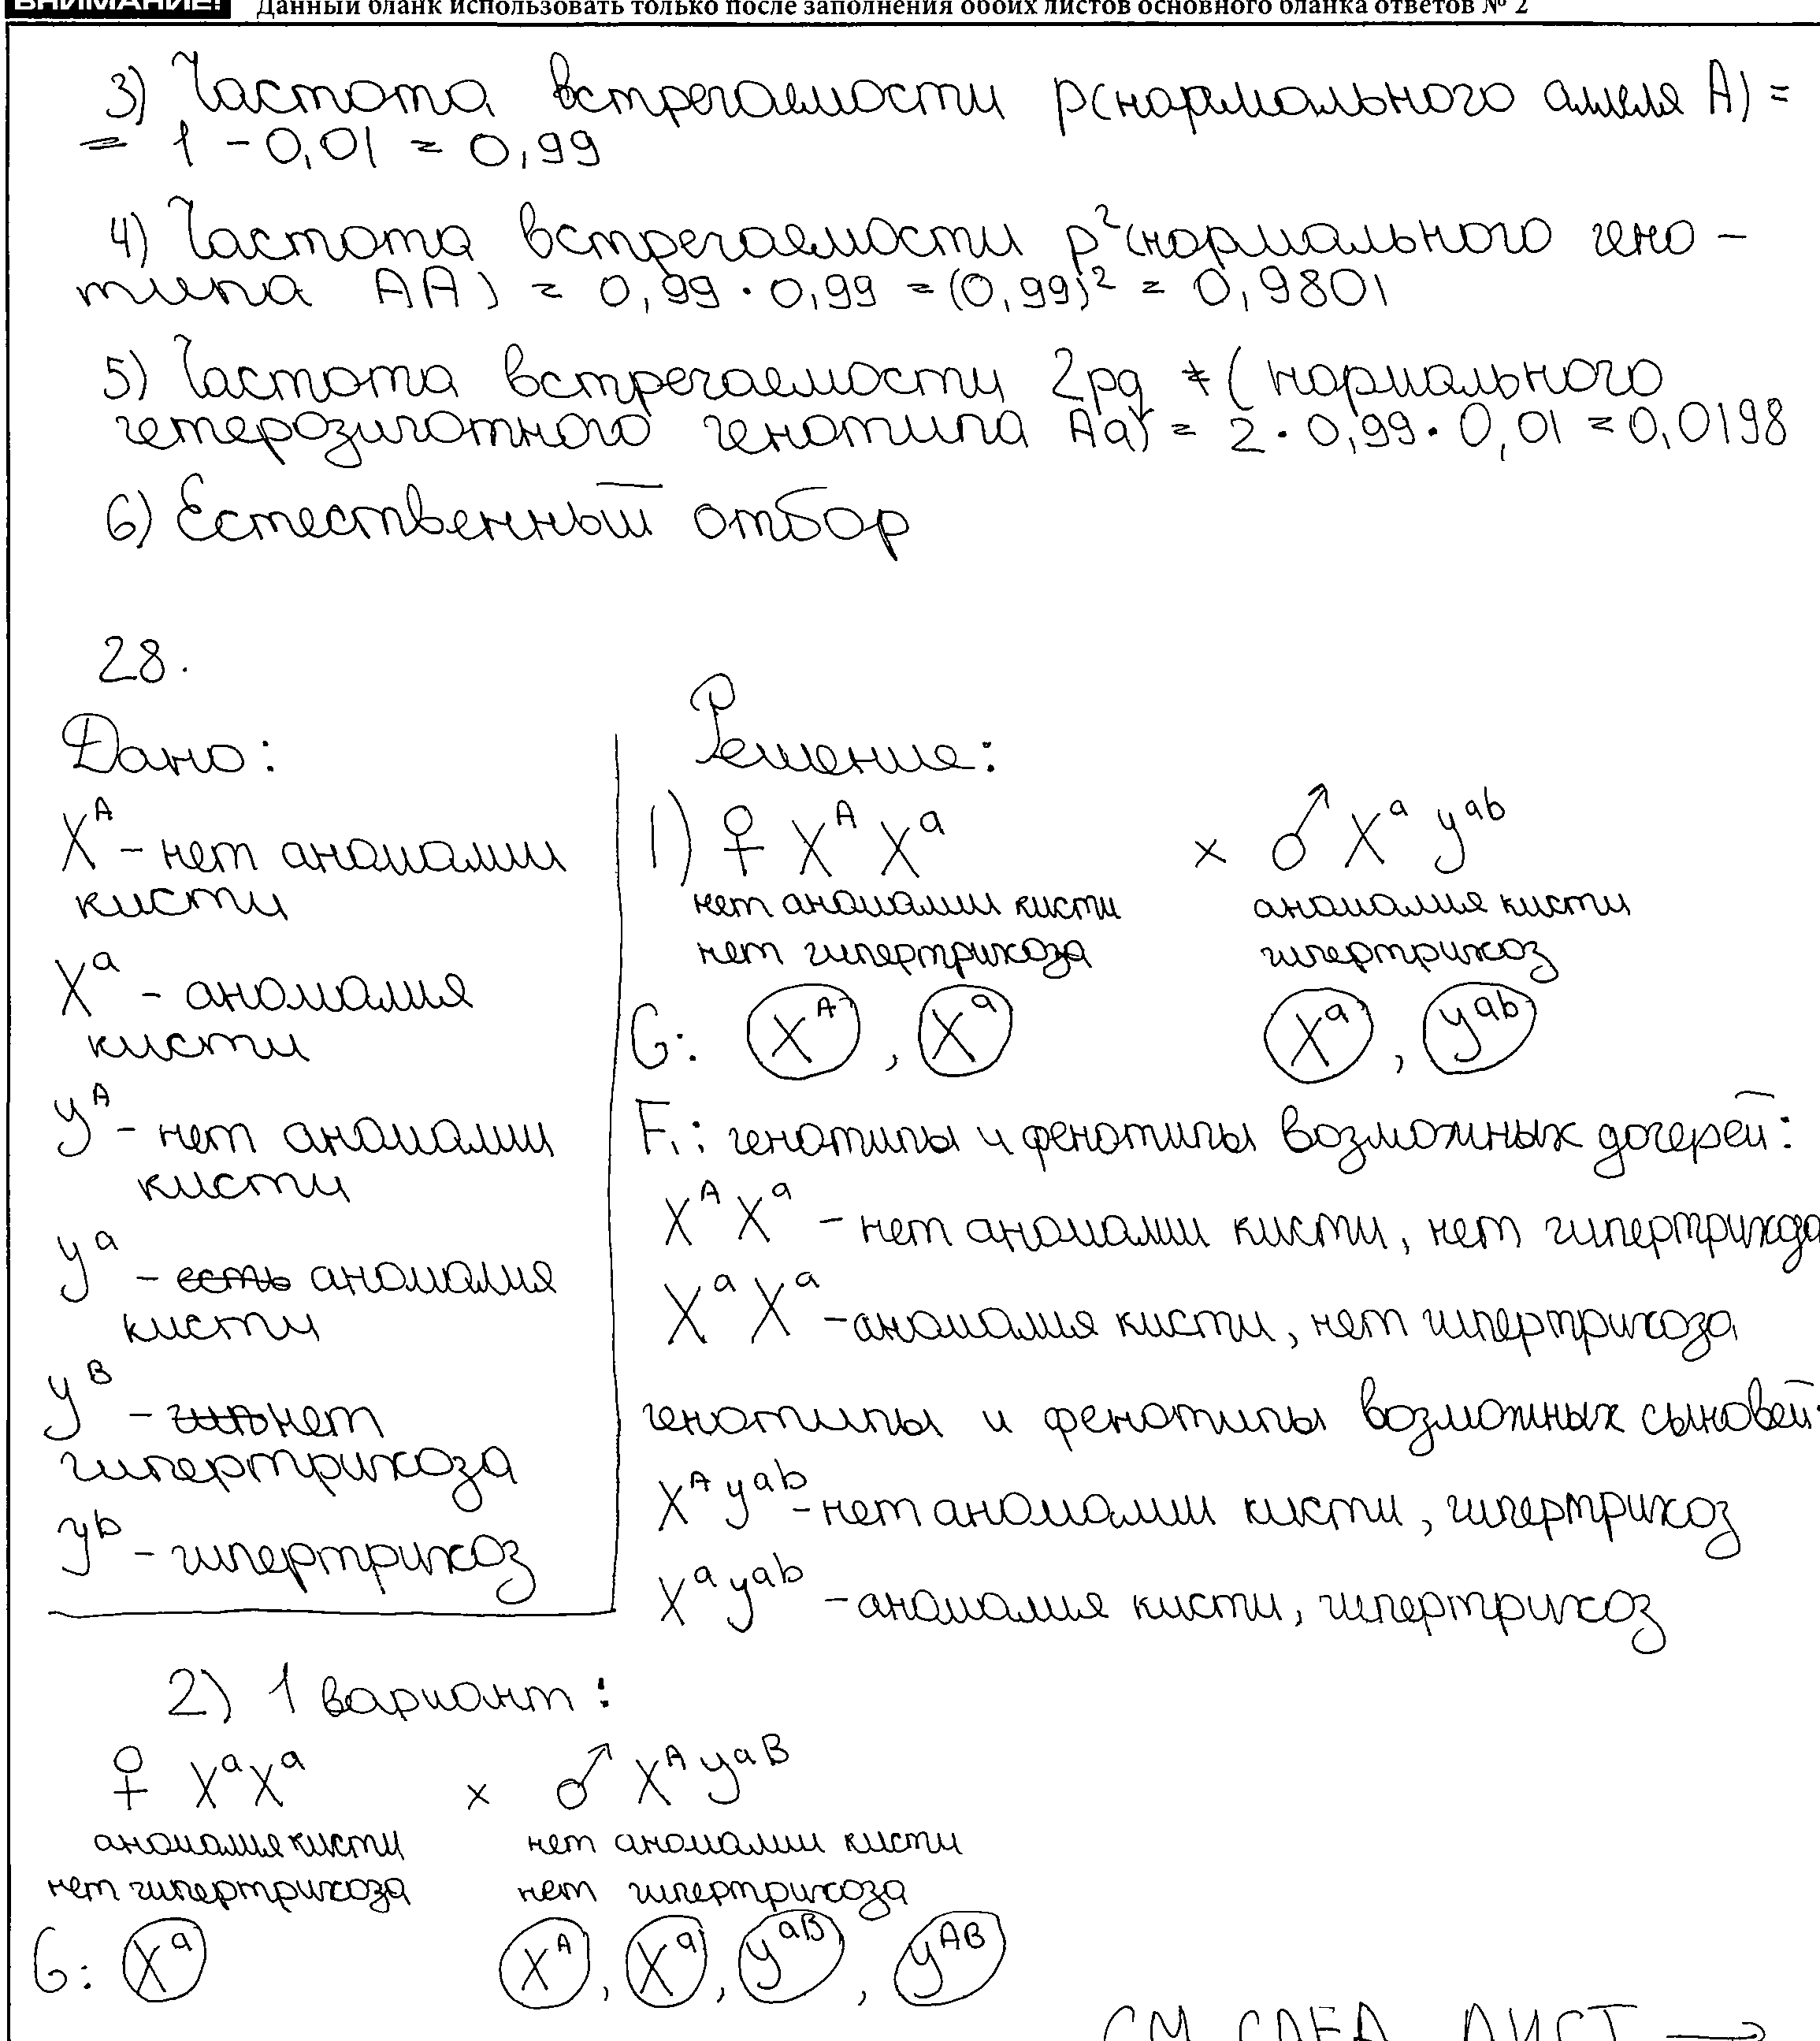 ВНИМАНИЕ! Данный бланк использовать только после заполнения обоих листов основного бланка ответов № 2
3) Частота встречаемости p(нормального аллеля A) =
= 1 - 0,01 = 0,99
4) Частота встречаемости p²(нормального гено-
типа AA) = 0,99 · 0,99 = (0,99)² = 0,9801
5) Частота встречаемости 2pq (нормального
гетерозиготного генотипа Aa) = 2 · 0,99 · 0,01 = 0,0198
6) Естественный отбор
28.
Дано:
X^A - нет аномалии
кисти
X^a - аномалия
кисти
y^A - нет аномалии
кисти
y^a - есть аномалия
кисти
y^B - нет
гипертрихоза
y^b - гипертрихоз
Решение:
1) ♀ X^A X^a × ♂ X^a y^ab
нет аномалии кисти аномалия кисти
нет гипертрихоза гипертрихоз
G: X^A, X^a X^a, y^ab
F₁: генотипы и фенотипы возможных дочерей:
X^A X^a - нет аномалии кисти, нет гипертрихоза
X^a X^a - аномалия кисти, нет гипертрихоза
генотипы и фенотипы возможных сыновей:
X^A y^ab - нет аномалии кисти, гипертрихоз
X^a y^ab - аномалия кисти, гипертрихоз
2) 1 вариант:
♀ X^a X^a × ♂ X^A y^aB
аномалия кисти нет аномалии кисти
нет гипертрихоза нет гипертрихоза
G: X^a X^A, X^a, y^aB, y^AB
СМ. СЛЕД. ЛИСТ →